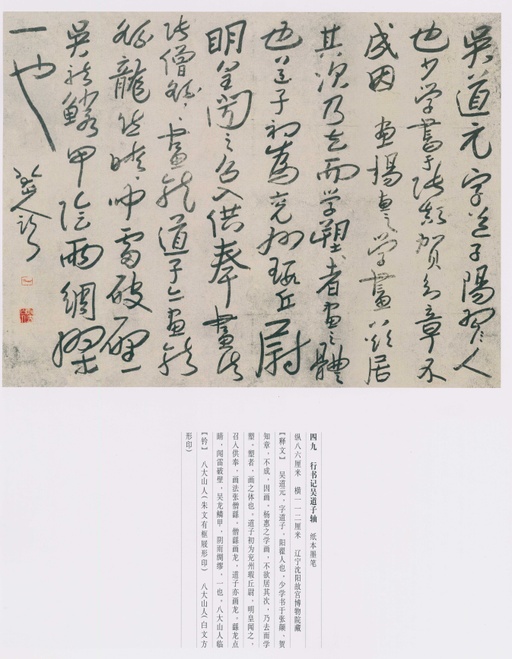 吳道元字道子陽翟人
也少学書于張顛賀知章不
成因畫楊惠之学畫不欲居
其次乃去而学塑者畫之體
也道子初為兗州瑕丘尉
明皇聞之召入供奉畫法
張僧繇〻畫龍道子亦畫龍
繇龍點睛聞雷破壁
吳龍鱗甲陰雨綢繆
一也
八大山人臨
四九　行书记吴道子轴　纸本墨笔
纵八六厘米　横一一二厘米　辽宁沈阳故宫博物院藏
【释文】　吴道元，字道子，阳翟人也，少学书于张颠，贺
知章，不成，因画，杨惠之学画，不欲居其次，乃去而学
塑，塑者，画之体也，道子初为兖州瑕丘尉，明皇闻之，
召入供奉，画法张僧繇，僧繇画龙，道子亦画龙，繇龙点
睛，闻雷破壁，吴龙鳞甲，阴雨绸缪，一也，八大山人临
【钤】　八大山人（朱文有框屐形印）　八大山人（白文方
形印）